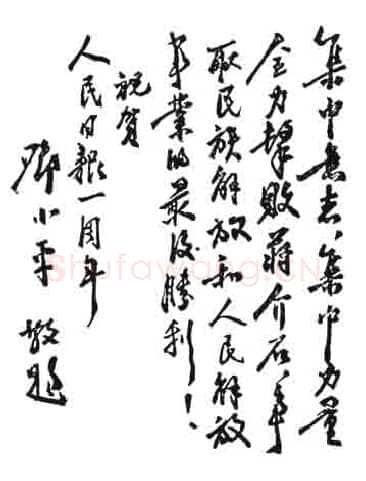 集中意志、集中力量
全力擊敗蔣介石、争
取民族解放和人民解放
事業的最後勝利！
祝賀
人民日報一周年
鄧小平 敬題
Shufawang.CN